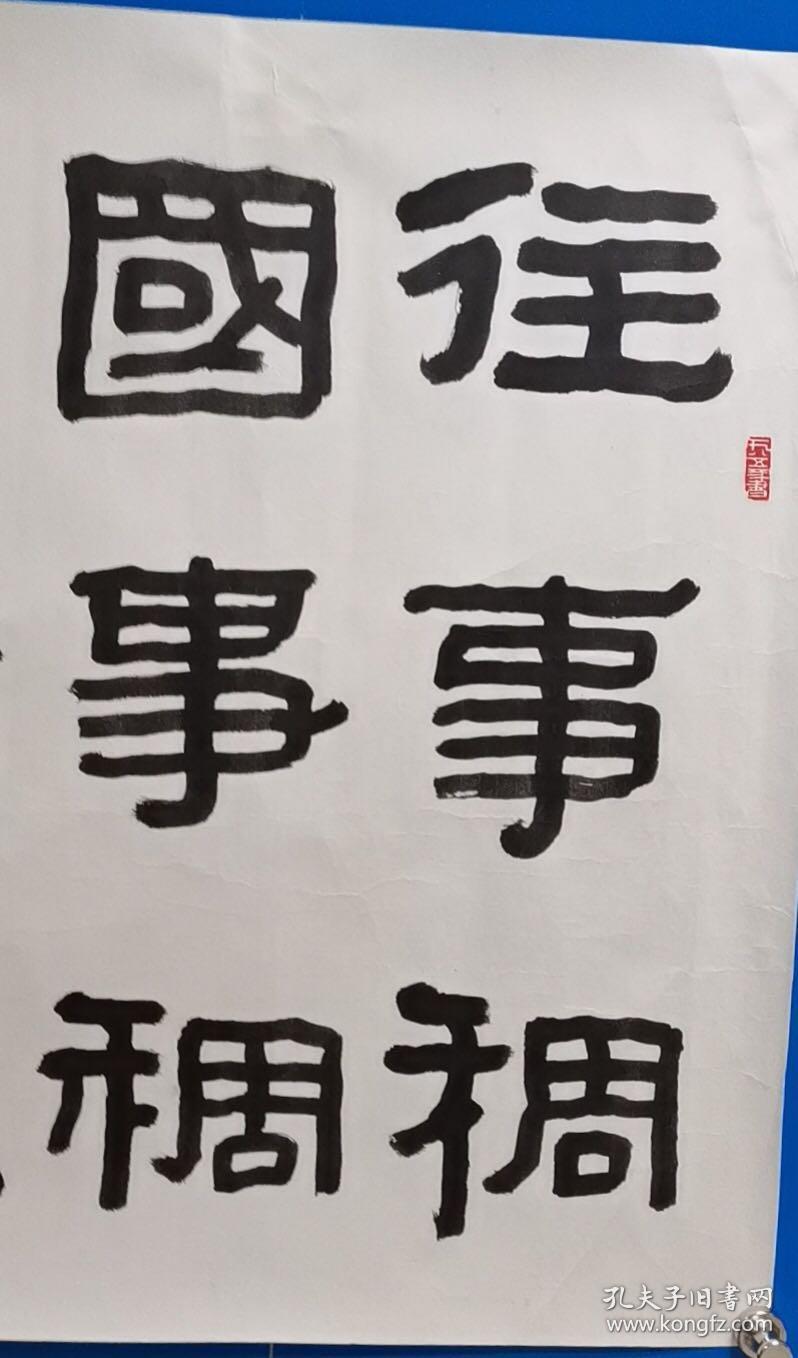 往事稠
國事稠
孔夫子旧书网
www.kongfz.com